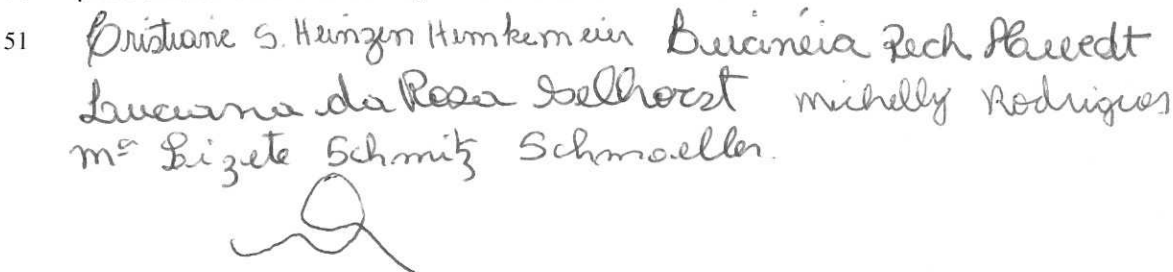 51 Cristiane S. Heinzen Hemkemeier Lucinéia Pech
Luciana da Rosa Selhorst Michelly Rodrigues
Mª Lizete Schmitz Schmoeller.